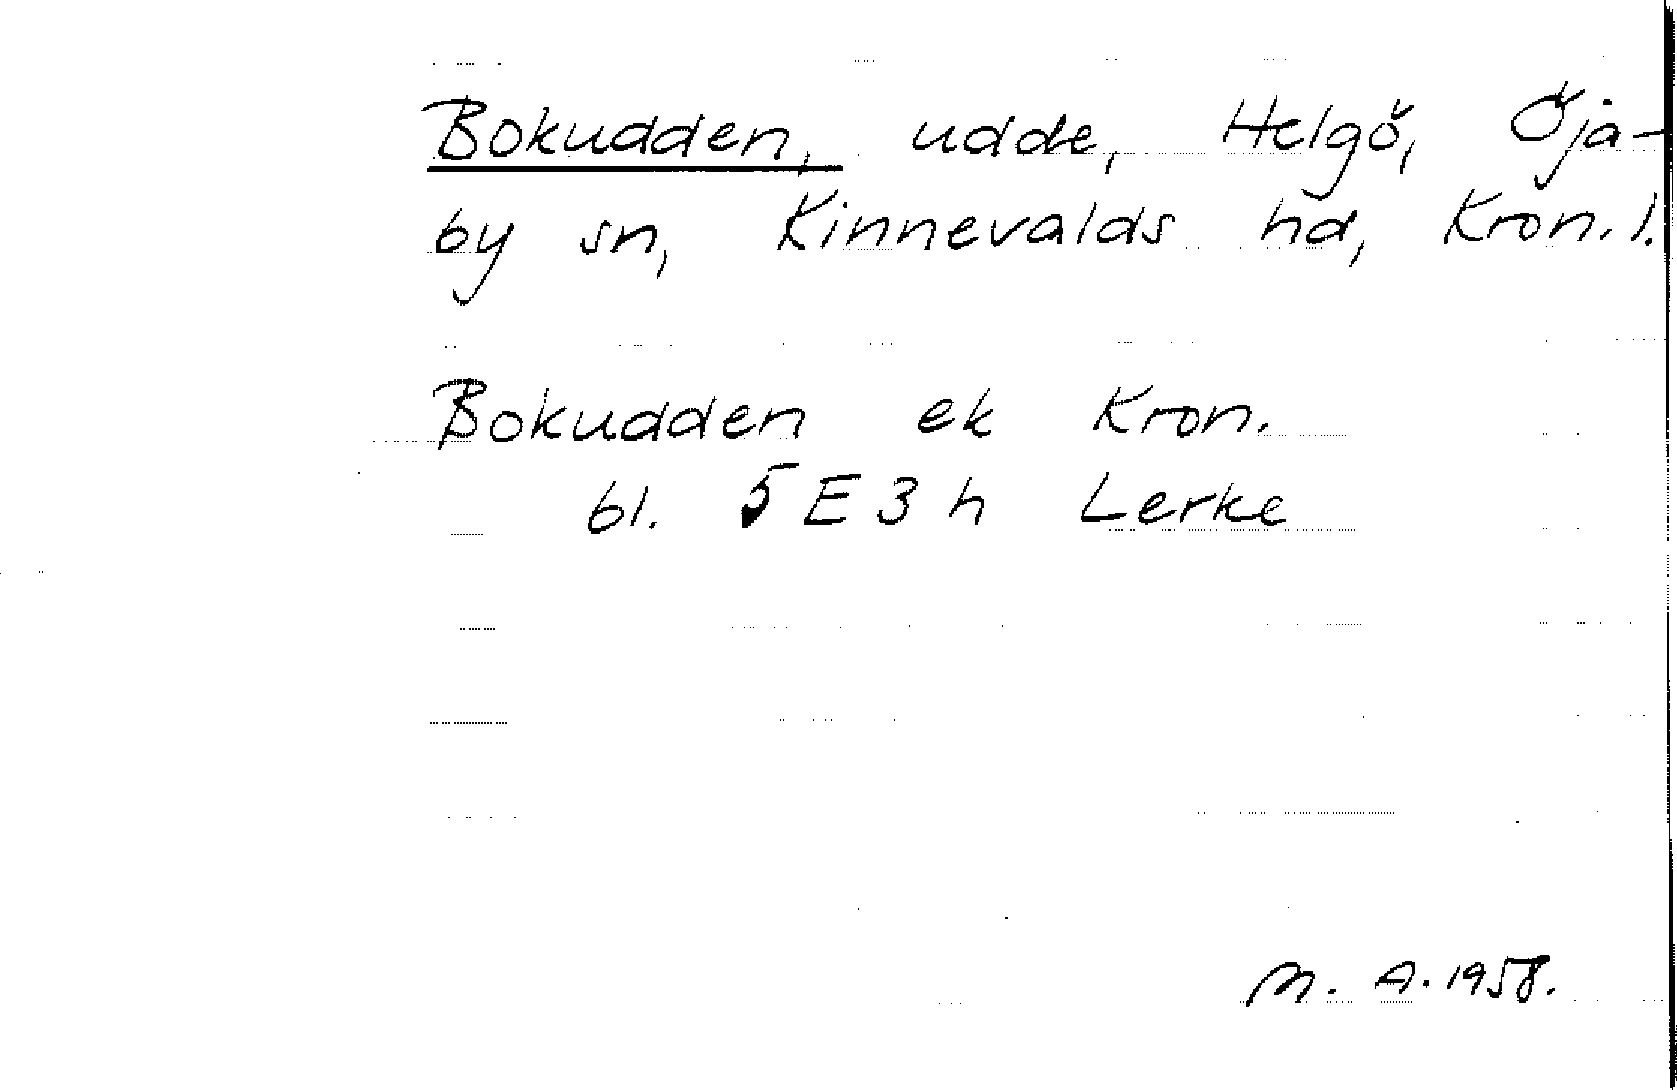 Bokudden, udde, Helgö, Öja-
by sn, Kinnevalds hd, Kron. l.
Bokudden ek Kron.
bl. 5 E 3 h Lerke
M. A. 1958.